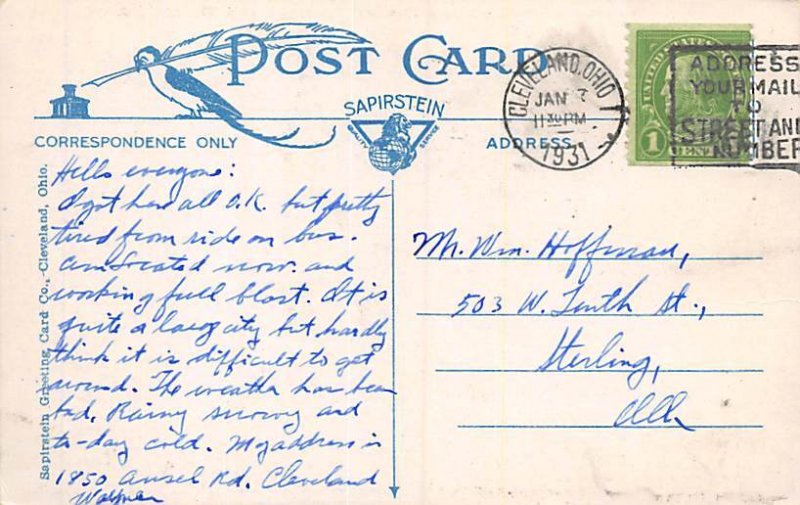 POST CARD
SAPIRSTEIN
QUALITY SERVICE
CORRESPONDENCE ONLY
ADDRESS
CLEVELAND, OHIO
JAN 7
11 30 PM
1931
ADDRESS
YOUR MAIL
TO
STREET AND
NUMBER
UNITED STATES
1
CENT
Sapirstein Greeting Card Co., Cleveland, Ohio.
Hello everyone:
I got here all O.K. but pretty
tired from ride on bus.
Am located now. and
working full blast. It is
quite a large city but hardly
think it is difficult to get
around. The weather has been
bad, Rainy snowy and
to-day cold. My address is
1850 Ansel Rd. Cleveland
Mr. Wm. Hoffman,
503 W. Tenth St.,
Sterling,
Ills.